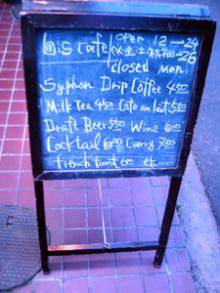 is cafe open 12—24
金土祝前-26
closed mon.
Syphon Drip Coffee 450
Milk Tea 450 Cafe au lait 550
Draft Beer 550 Wine 600
Cocktail 600 Curry 700
french toast 600 etc.....